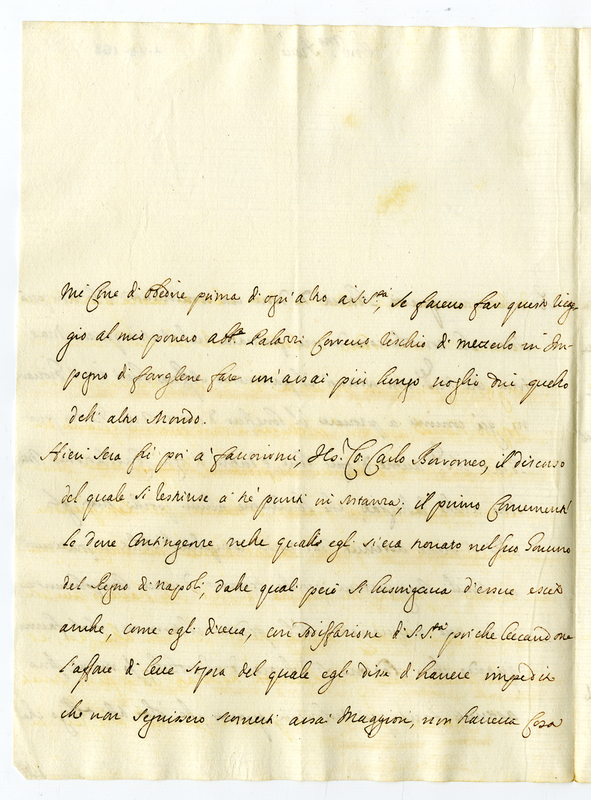 mi Cone d'obedire prima di ogn'altro a S. S.tà, se facevo far questo viag-
gio al mio povero abb.e Palazzi correvo rischio di metterlo in Im-
pegno di farglene fare un'assai più lungo voglio dir quello
dell'altro Mondo.
Hieri sera fù poi a favorirmi, il Co: Carlo Borromeo, il discorso
del quale si restrinse a trè punti in sostanza; il primo
le dure contingenze nelle quali egli s'era trovato nel suo Governo
del Regno di napoli, dalle quali però si lusingava d'essere escito
anche, come egli diceva, con sodisfazione di S. S.tà poiche
l'affare di Lecce sopra del quale egli disse d'havere impedito
che non seguissero sconcerti assai Maggiori, non haveva Cosa